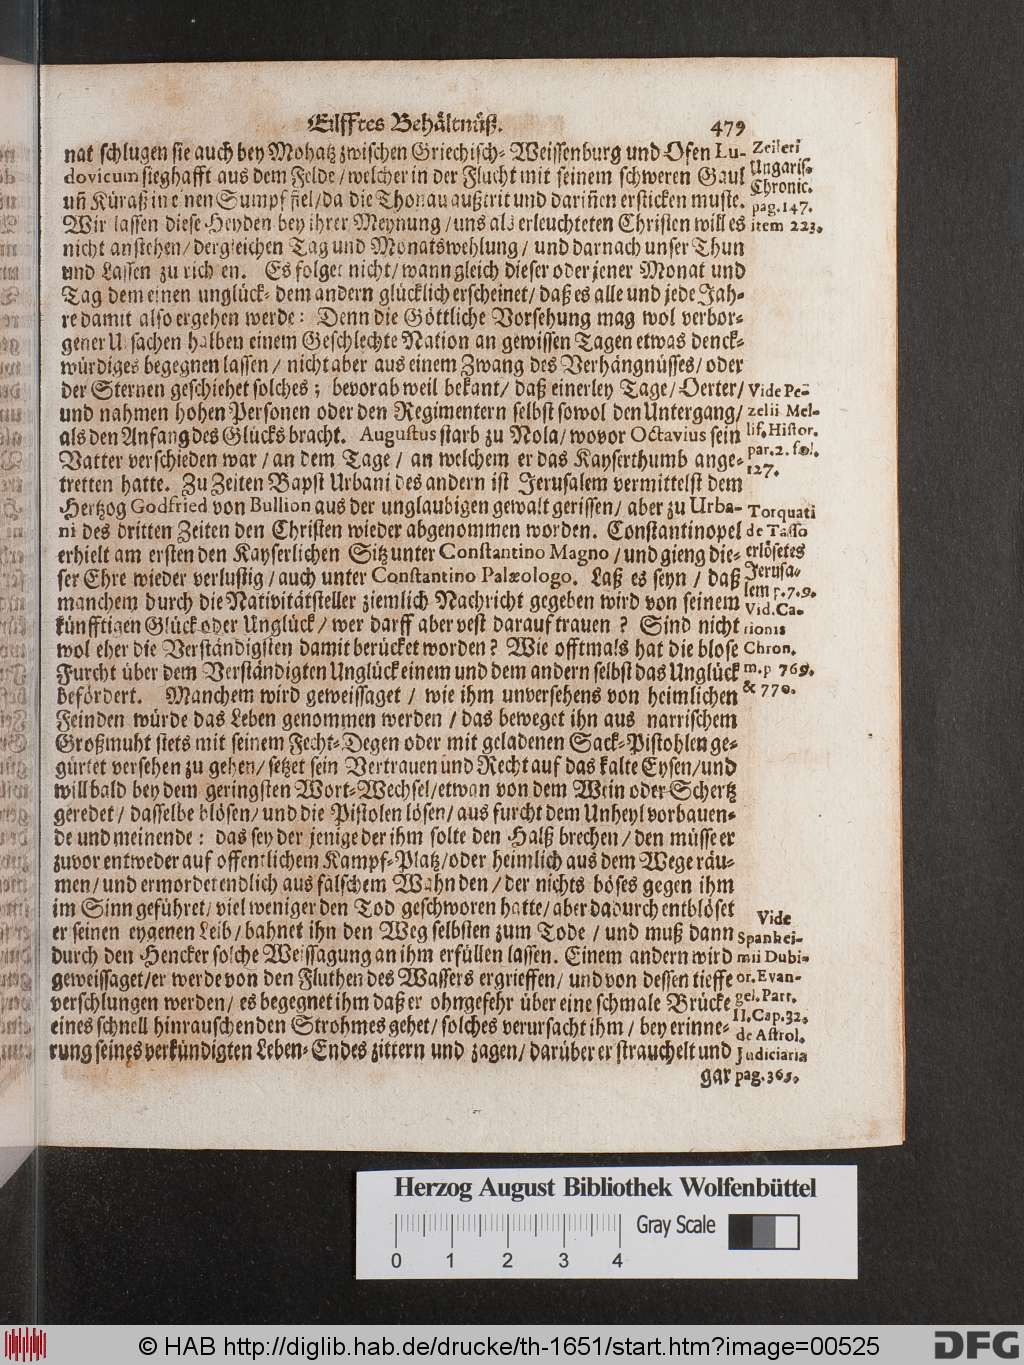 Eilfftes Behältnüß. 479
nat schlugen sie auch bey Mohatz zwischen Griechisch-Weissenburg und Ofen Lu-
dovicum sieghafft aus dem Felde/welcher in der Flucht mit seinem schweren Gaul
uñ Küraß in einen Sumpf fiel/da die Thonau außtrit und dariñen ersticken muste.
Wir lassen diese Heyden bey ihrer Meynung/uns als erleuchteten Christen will es
nicht anstehen/dergleichen Tag und Monatswehlung/und darnach unser Thun
und Lassen zu richten. Es folget nicht/wann gleich dieser oder jener Monat und
Tag dem einen unglück- dem andern glücklich erscheinet/daß es alle und jede Jah-
re damit also ergehen werde: Denn die Göttliche Vorsehung mag wol verbor-
gener Ursachen halben einem Geschlechte Nation an gewissen Tagen etwas denck-
würdiges begegnen lassen/nicht aber aus einem Zwang des Verhängnüsses/oder
der Sternen geschiehet solches; bevorab weil bekant/daß einerley Tage/Oerter/
und nahmen hohen Personen oder den Regimentern selbst sowol den Untergang/
als den Anfang des Glücks bracht. Augustus starb zu Nola/wovor Octavius sein
Vatter verschieden war/an dem Tage/an welchem er das Kayserthumb ange-
tretten hatte. Zu Zeiten Bapst Urbani des andern ist Jerusalem vermittelst dem
Hertzog Godfried von Bullion aus der unglaubigen gewalt gerissen/aber zu Urba-
ni des dritten Zeiten den Christen wieder abgenommen worden. Constantinopel
erhielt am ersten den Kayserlichen Sitz unter Constantino Magno/und gieng die-
ser Ehre wieder verlustig/auch unter Constantino Palæologo. Laß es seyn/daß
manchem durch die Nativitätsteller ziemlich Nachricht gegeben wird von seinem
künfftigen Glück oder Unglück/wer darff aber vest darauf trauen? Sind nicht
wol eher die Verständigsten damit berücket worden? Wie offtmals hat die blose
Furcht über dem Verständigten Unglück einem und dem andern selbst das Unglück
befördert. Manchem wird geweissaget/wie ihm unversehens von heimlichen
Feinden würde das Leben genommen werden/das beweget ihn aus narrischem
Großmuht stets mit seinem Fecht-Degen oder mit geladenen Sack-Pistohlen ge-
gürtet versehen zu gehen/setzet sein Vertrauen und Recht auf das kalte Eysen/und
will bald bey dem geringsten Wort-Wechsel/etwan von dem Wein oder Schertz
geredet/dasselbe blösen/und die Pistolen lösen/aus furcht dem Unheyl vorbauen-
de und meinende: das sey der jenige der ihm solte den Halß brechen/den müsse er
zuvor entweder auf offentlichem Kampf-Platz/oder heimlich aus dem Wege räu-
men/und ermordet endlich aus falschem Wahn den/der nichts böses gegen ihm
im Sinn geführet/viel weniger den Tod geschworen hatte/aber dadurch entblöset
er seinen eygenen Leib/bahnet ihn den Weg selbsten zum Tode/und muß dann
durch den Hencker solche Weissagung an ihm erfüllen lassen. Einem andern wird
geweissaget/er werde von den Fluthen des Wassers ergrieffen/und von dessen tieffe
verschlungen werden/es begegnet ihm daß er ohngefehr über eine schmale Brücke
eines schnell hinrauschenden Strohmes gehet/solches verursacht ihm/bey erinne-
rung seines verkündigten Lebens-Endes zittern und zagen/darüber er strauchelt und
gar
Zeileri
Ungaris.
Chronic.
pag. 147.
item 223.
Vide Pe-
zelii Mel-
lif. Histor.
par. 2. fol.
127.
Torquati
de Tasso
erlösetes
Jerusa-
lem p. 7. 9.
Vid. Ca-
rionis
Chron.
m. p 769.
& 770.
Vide
Spanhei-
mii Dubi-
or. Evan-
gel. Part.
II. Cap. 32.
de Astrol.
Judiciaria
pag. 365.
Herzog August Bibliothek Wolfenbüttel
Gray Scale
0 1 2 3 4
© HAB http://diglib.hab.de/drucke/th-1651/start.htm?image=00525
DFG